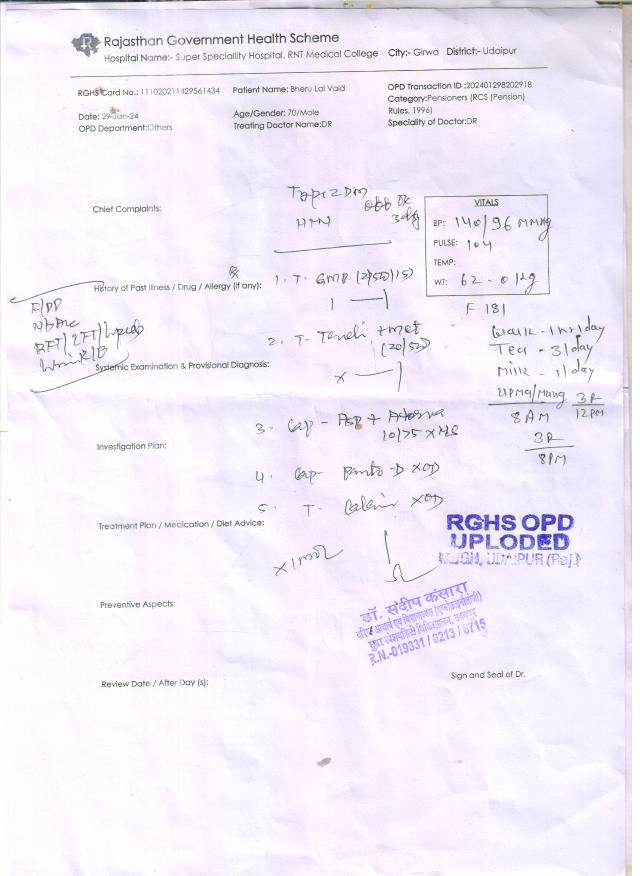 Rajasthan Government Health Scheme
Hospital Name:- Super Speciallity Hospital, RNT Medical College City:- Girwa District:- Udaipur
RGHS Card No.: 111020211429561434 Patient Name: Bheru Lal Vaid OPD Transaction ID :202401298202918
Category:Pensioners (RCS (Pension)
Date: 29-Jan-24 Age/Gender: 70/Male Rules, 1996)
OPD Department:Others Treating Doctor Name:DR Speciality of Doctor:DR
Type 2 DM
HTN
Chief Complaints:
VITALS
BP: 140/96 MMHg
PULSE: 104
TEMP:
WT: 62-0 kg
F-181
Rx
History of Past Illness / Drug / Allergy (If any):
1. T. GMP (2/500/15)
1 — 1
F/PP
HbA1c
RFT/LFT/Lipids
Urine R/B
2. T. Teneli + Met
(20/500)
x — 1
Walk - 1hr/day
Tea - 3/day
Milk - 1/day
8 AM
12PM
8PM
Systemic Examination & Provisional Diagnosis:
3. Cap - Asp + Atorva
10/75 x HS
Investigation Plan:
4. Cap - Panto-D x OD
5. T. x OD
Treatment Plan / Medication / Diet Advice:
RGHS OPD
UPLODED
MBGH, UDAIPUR (Raj.)
Preventive Aspects:
डॉ. संदीप कंसारा
R.N.-019331 / 6213 / 8715
Review Date / After Day (s):
Sign and Seal of Dr.